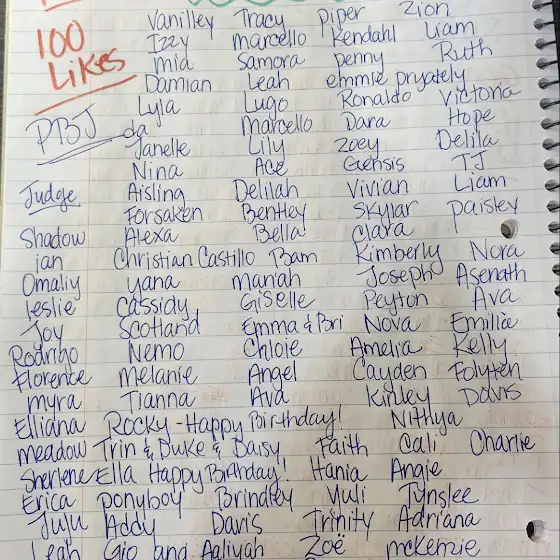 Vanilley Tracy Piper Zion
100 Izzy Marcello Kendahl Liam
Likes mia Samora penny Ruth
Damian Leah emmie pryately
Lyla Lugo Ronaldo Victoria
PBJ da Marcello Dara Hope
Janelle Lily Zoey Delila
Nina Ace Gensis TJ
Judge Aisling Delilah Vivian Liam
Forsaken Bentley Skylar paisley
Shadow Alexa Bella Clara
ian Christian Castillo Bam Kimberly Nora
Omaliy yana mariah Joseph Asenath
leslie Cassidy Giselle Peyton Ava
Joy Scotland Emma & Bri Nova Emilie
Rodrigo Nemo Chloie Amelia Kelly
Florence melanie Angel Cayden Folyten
myra Tianna Ava Kinley Davis
Elliana Rocky - Happy Birthday! Nithya
meadow Trin & Duke & Daisy Faith Cali Charlie
Sherlene Ella Happy Birthday! Hania Angie
Erica ponyboy Brindley Yuli Tynslee
Juju Addy Davis Trinity Adriana
Leah Gio and Aaliyah Zoë mckemie